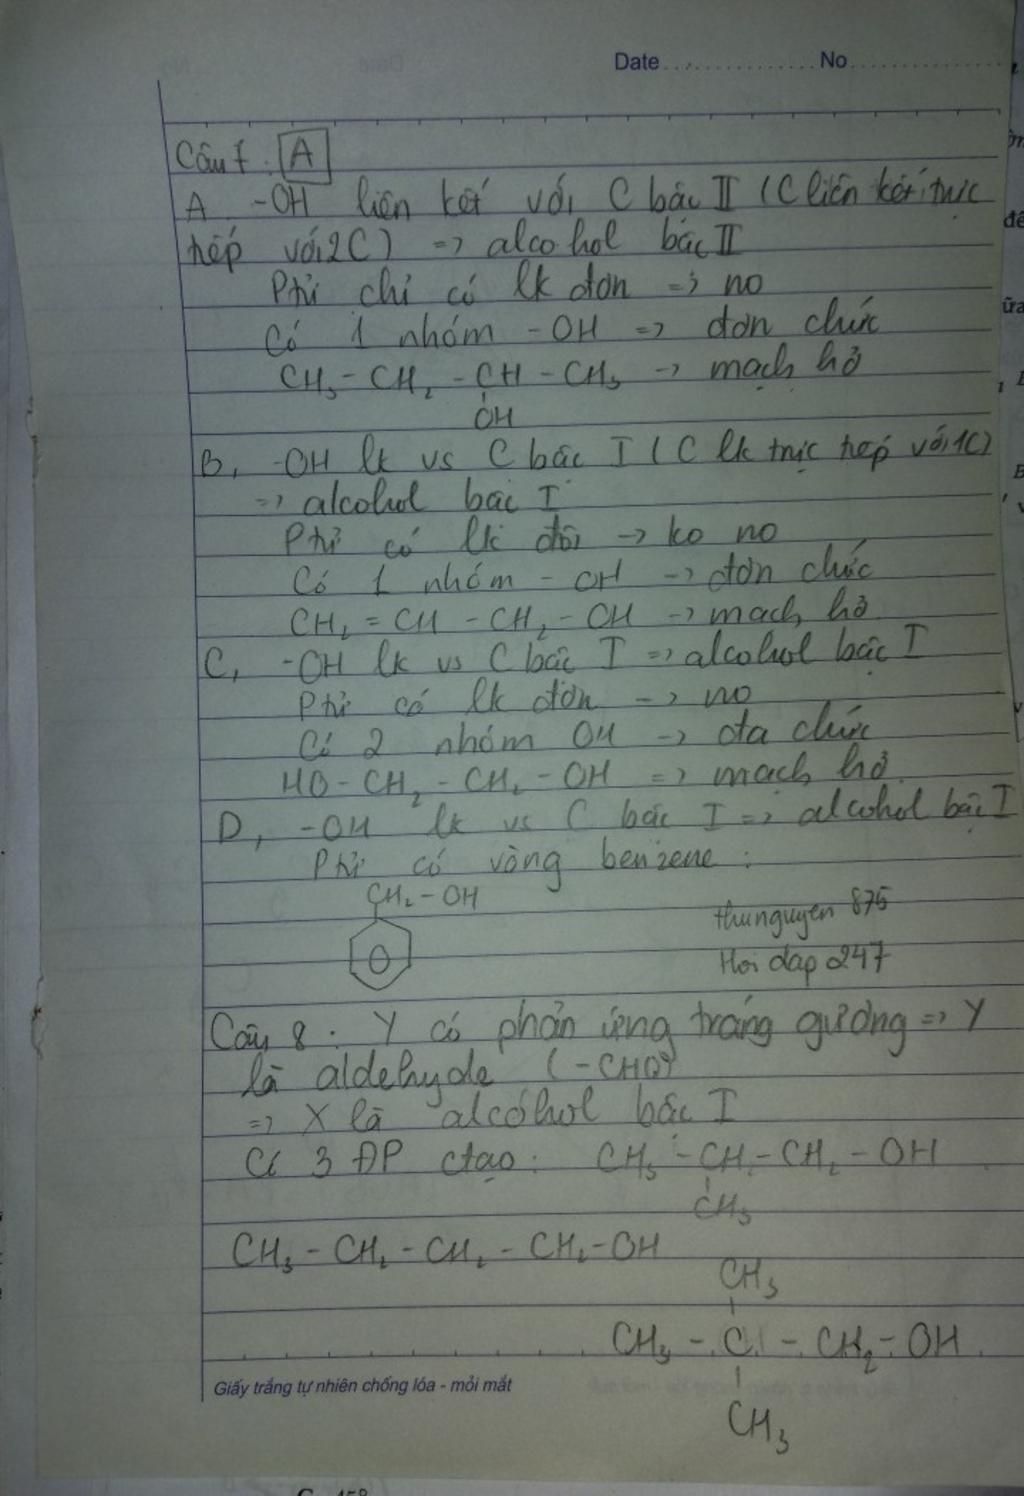 Date .................. No ..................
Câu 7 : A
A, -OH liên kết với C bậc II ( C liên kết trực
tiếp với 2C) => alcohol bậc II
Ptử chỉ có lk đơn => no
Có 1 nhóm -OH => đơn chức
CH3 - CH2 - CH - CH3 -> mạch hở
OH
B, -OH lk vs C bậc I ( C lk trực tiếp với 1C)
=> alcohol bậc I
Ptử có lk đôi -> ko no
Có 1 nhóm - OH -> đơn chức
CH2 = CH - CH2 - OH -> mạch hở
C, -OH lk vs C bậc I => alcohol bậc I
Ptử có lk đơn -> no
Có 2 nhóm OH -> đa chức
HO - CH2 - CH2 - OH => mạch hở
D, -OH lk vs C bậc I => alcohol bậc I
Ptử có vòng benzene :
CH2 - OH
thunguyen 875
Hoi dap 247
Câu 8 : Y có phản ứng tráng gương => Y
là aldehyde ( -CHO)
=> X là alcohol bậc I
Có 3 ĐP ctạo : CH3 - CH - CH2 - OH
CH3
CH3 - CH2 - CH2 - CH2 - OH
CH3
CH3 - C - CH2 - OH
CH3
Giấy trắng tự nhiên chống lóa - mỏi mắt